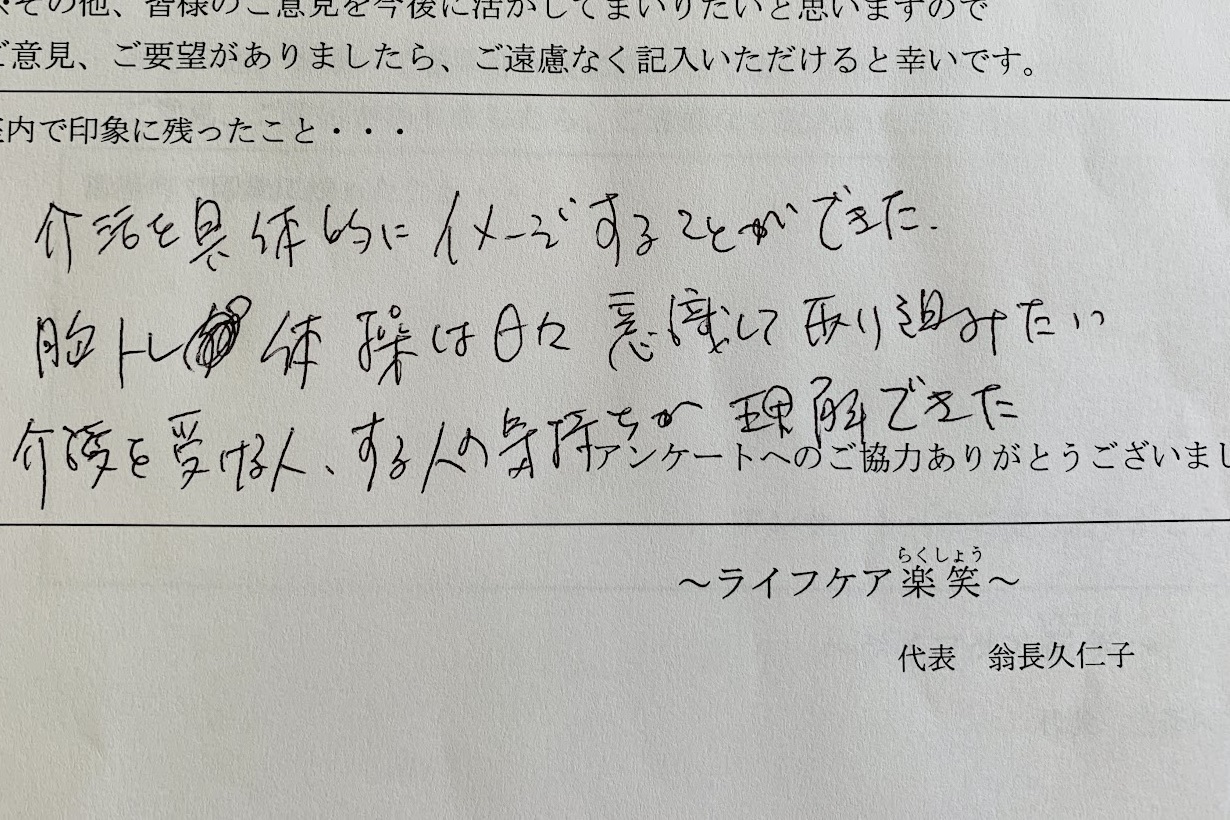 その他、皆様のご意見を今後に活かしてまいりたいと思いますので
ご意見、ご要望がありましたら、ご遠慮なく記入いただけると幸いです。
内で印象に残ったこと・・・
介活を具体的にイメージすることができた.
脳トレ 体操は日々意識して取り組みたい
介護を受ける人、する人の気持ちが理解できた
アンケートへのご協力ありがとうございまし
らくしょう
～ライフケア楽笑～
代表　翁長久仁子